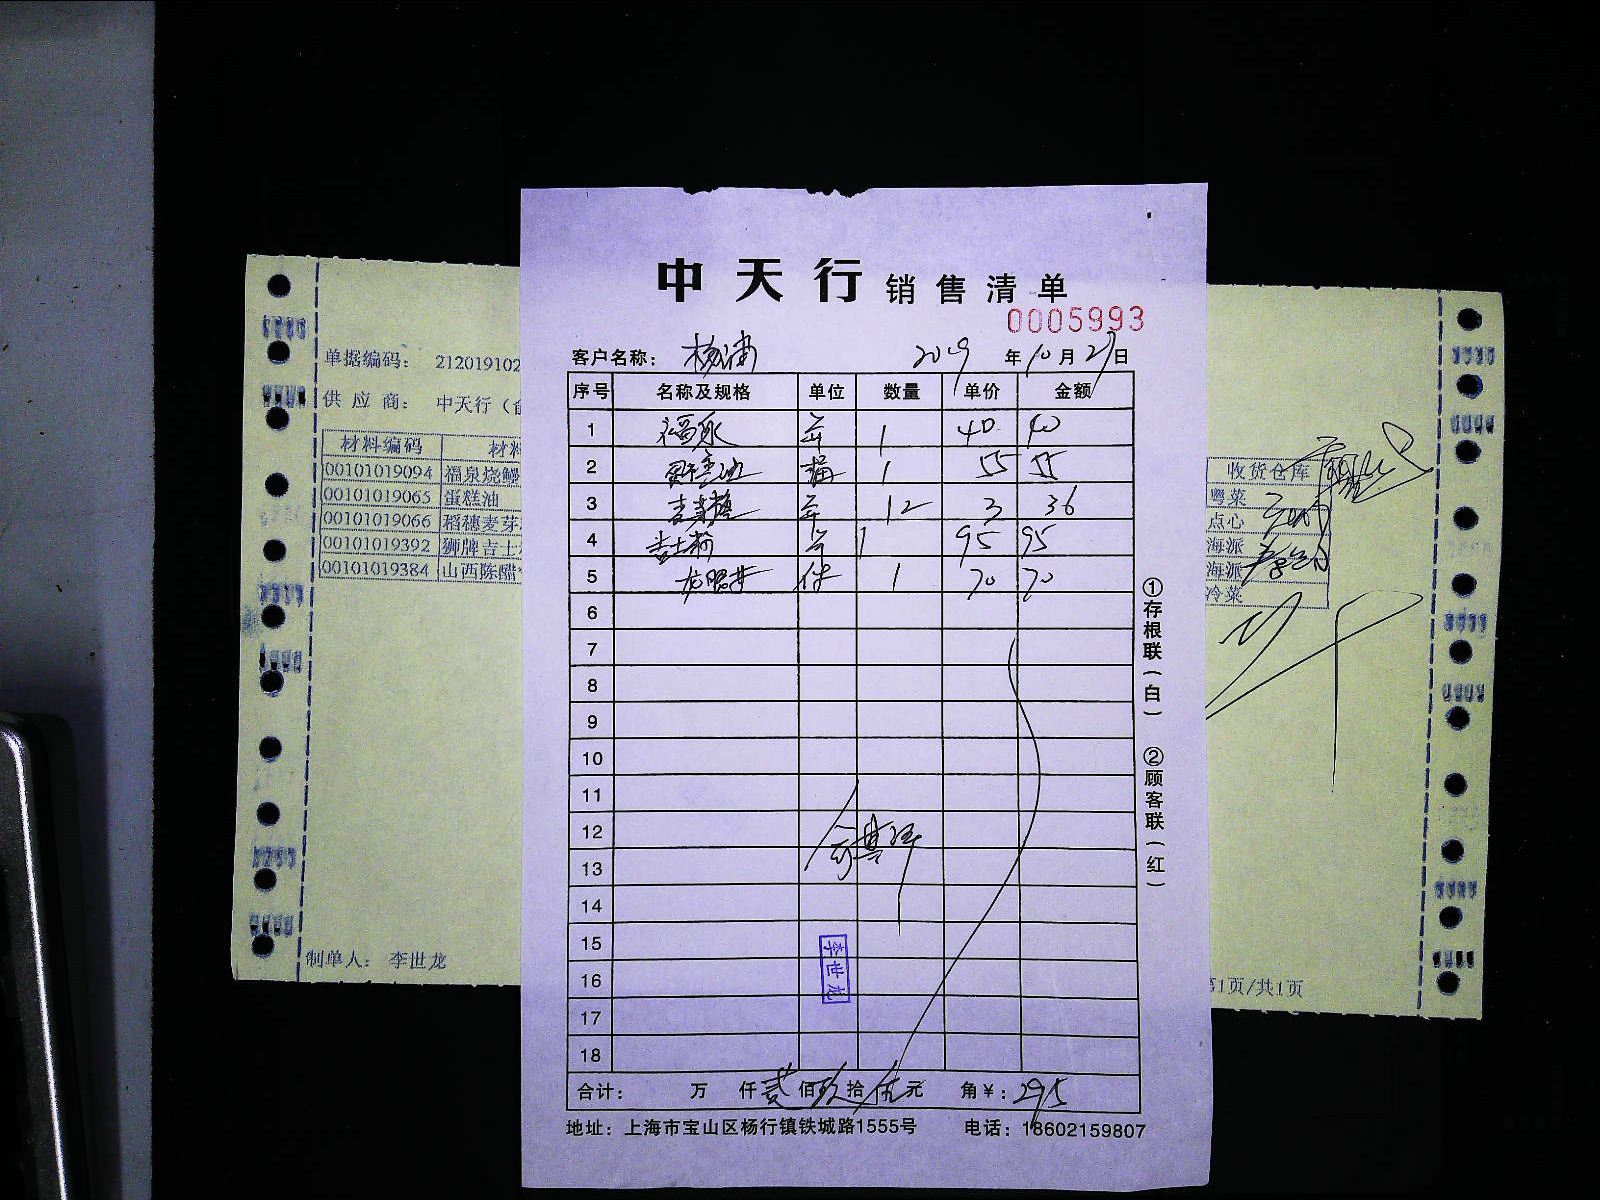 中天行 销售清单
0005993
客户名称： 杨浦 2019 年 10 月 27 日
序号 名称及规格 单位 数量 单价 金额
1 福泉 1 40 40
2 桶 1 55 55
3 12 3 36
4 吉士粉 1 95 95
5 件 1 70 70
6
7
8
9
10
11
12
13
14
15
16
17
18
李世龙
合计： 万 仟 贰 佰 玖 拾 伍 元 角 ¥：295
地址：上海市宝山区杨行镇铁城路1555号 电话：18602159807
①存根联（白） ②顾客联（红）
单据编码： 212019102
供应商： 中天行（
材料编码
00101019094 福泉烧鳗
00101019065 蛋糕油
00101019066 稻穗麦芽
00101019392 狮牌吉士
00101019384 山西陈醋
制单人： 李世龙
收货仓库
粤菜
点心
海派
海派
冷菜
第1页/共1页